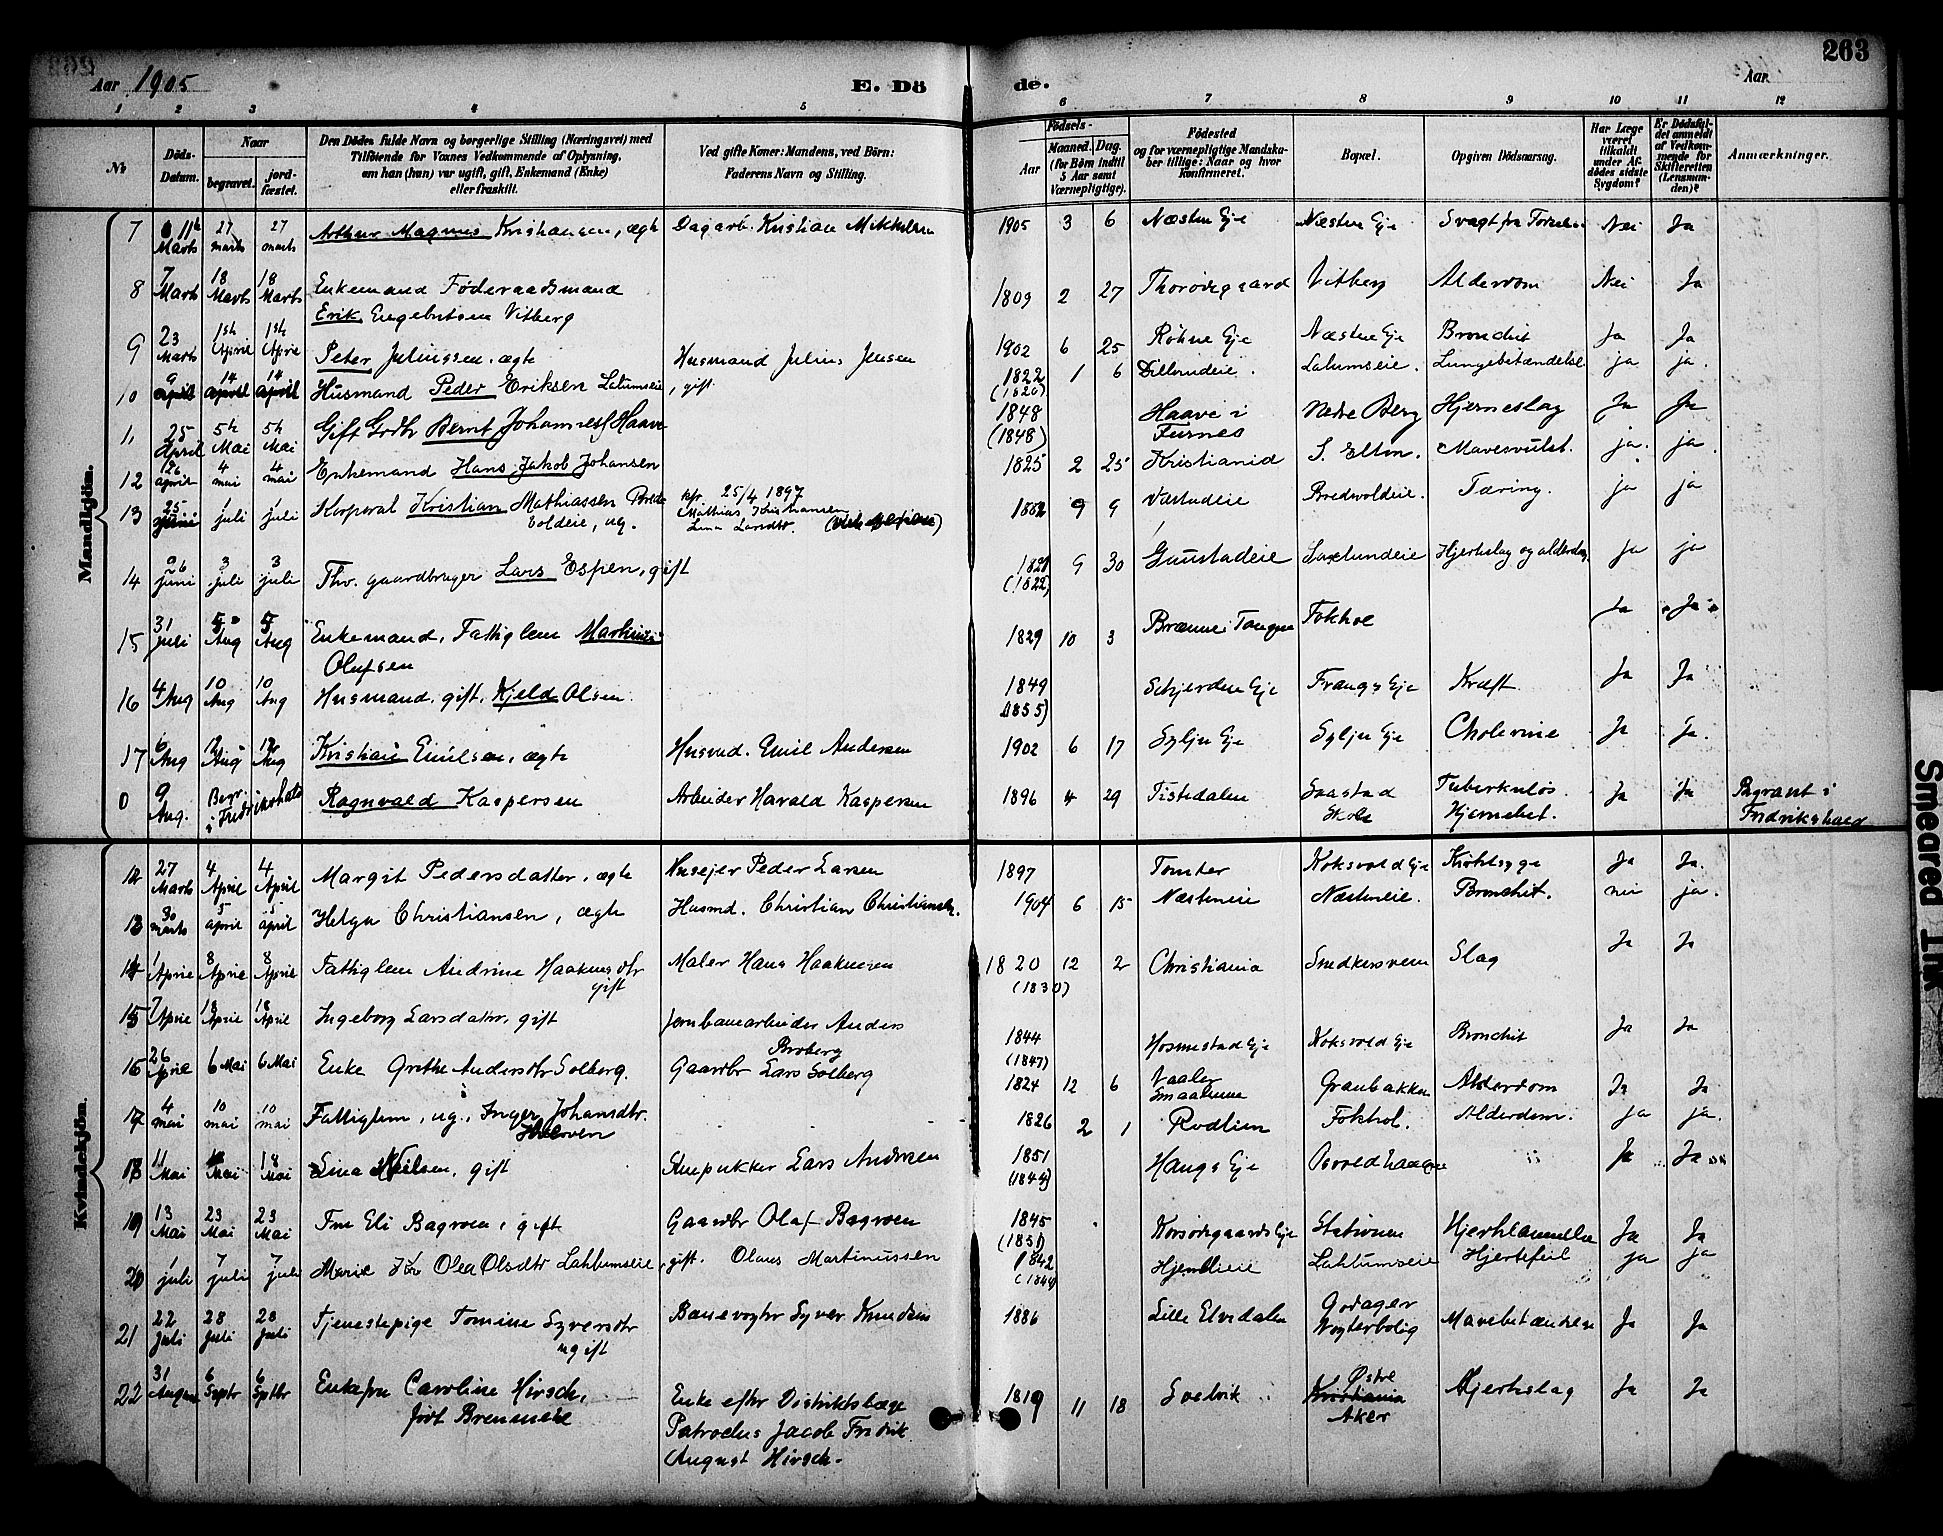 263
Aar 1905
E. Dö
de.
Aar
1 2 3 4 5 6 7 8 9 10 11 12
Nr.
Döds-Datum.
Naar
begravet.
jordfæstet.
Den Dödes fulde Navn og borgerlige Stilling (Næringsvei) med Tilföiende for Voxnes Vedkommende af Oplysning, om han (hun) var ugift, gift, Enkemand (Enke) eller fraskilt.
Ved gifte Koner: Mandens, ved Börn: Faderens Navn og Stilling.
Födsels-
Aar
Maaned. Dag.
(for Börn indtil 5 Aar samt Værnepligtige).
Födested og for værnepligtige Mandskaber tillige: Naar og hvor Konfirmeret.
Bopæl.
Opgiven Dödsaarsag.
Har Læge været tilkaldt under Afdödes sidste Sygdom?
Er Dödsfaldet anmeldt af Vedkommende for Skifteretten (Lensmanden)?
Anmærkninger.
Mandkjön.
7 11te Marts 27 marts 27 marts Arthur Magnus Kristiansen, ægte Dagarb. Kristian Mikkelsen 1905 3 6 Næsten Eje Næsten Eje Svagt fra Fødselen Nei Ja
8 7 Marts 18 Marts 18 Marts Enkemand Føderaadsmand
Erik Engebretsen Vitberg 1809 2 27 Thorødegaard Vitberg Alderdom Nei Ja
9 23 Marts 1ste April 1ste April Peter Juliussen, ægte Husmand Julius Jensen 1902 6 25 Røhne Eje Næsten Eje Bronchit Ja Ja
10 9 april 14 april 14 april Husmand Peder Eriksen Lalumseie, gift 1822 1 6 Lalumseie. Lungebetændelse ja ja.
25 April 5te Mai 5te Mai Gift Grdbr Bernt Johannes. Haave 1848 (1848) Haave i Furnes Nedre Berg Hjerneslag Ja Ja
12 26 april 4 mai 4 mai Enkemand Hans Jakob Johansen 1825 2 25 Kristiania S. Elton. Mavesvulst. ja. ja.
13 25 juni 1 juli 1 juli Korporal Kristian Mathiassen Bredvoldeie, ug. kfr. 25/4 1897
Mathias Kristiansen
Lina Larsdtr. 1882 9 9 Vestadeie Bredvoldeie. Tæring. ja ja
14 26 juni 3 juli 3 juli Fhv. gaardbruger Lars Espen, gift (1822) 9 30 Gaustadeie Saxlundeie Hjerteslag og alderdom ja ja
15 31 juli 5 Aug 5 Aug Enkemand, Fattiglem Martinus
Olufsen 1829 10 3 Brænne i Tangen Fokhol Ja Ja
16 4 Aug 10 Aug 10 Aug Husmand, gift, Kjeld Olsen 1849 (1855) Schjerden Eje Frangs Eje Kræft Ja Ja
17 6 Aug 12 Aug 12 Aug Kristian Emilsen, ægte Husmd. Emil Andersen 1902 6 17 Sylju Eje Sylju Eje Cholerine Ja Ja.
0 9 Aug. Begr. i Fredrikshald Ragnvald Kaspersen Arbeider Harald Kaspersen 1896 4 29 Tistedalen Saastad Skole Tuberkuløs Hjernebet. Ja Ja Begravet i
Fredrikshald
Kvindekjön.
12 27 Marts 4 April 4 April Margit Pedersdatter, ægte Husejer Peder Larsen 1897 Tomter Koksvold Eje Kirtelsyge Ja Ja.
13 30 marts 5 april 5 april Helga Christiansen, ægte Husmd. Christian Christiansen. 1904 6 15 Næsteneie Næsteneie. Bronchit. nei ja.
14 1 April 8 April 8 April Fattiglem Andrine Haakensdtr
gift Maler Hans Haakensen 1820 (1830) 12 2 Christiania Snedkersveen Slag Ja Ja
15 7 April 18 April 18 April Ingeborg Larsdatter, gift Jernbanearbeider Anders
Broberg 1844 (1847) Hosmestad Eje Koksvold Eje Bronchit Ja Ja
16 26 April 6 Mai 6 Mai Enke Grethe Andersdtr Solberg. Gaardbr Lars Solberg 1824 12 6 Vaaler Smaalenene Granbakken Alderdom Ja Ja
17 4 mai 10 mai 10 mai Fattiglem, ug., Inger Johansdtr. 1826 2 1 Rodlien Fokhol. Alderdom. ja ja.
18 11 Mai 18 Mai 18 Mai Lina Nilsen, gift Stenpukker Lars Andersen 1851 (1844) Haugs Eje Ja Ja
19 13 Mai 23 Mai 23 Mai Fru Eli Bagroen, gift Gaardbr Olaf Bagroen 1845 (1851) Korsødegaards Eje Stationen Hjertelammelse Ja Ja
20 1 juli 7 juli 7 juli Marie Olea Olsdtr Lahlumseie, gift. Olaus Martinussen 1842 (1844) Hjemlieie Lahlumseie Hjertefeil ja ja
21 22 Juli 28 Juli 28 Juli Tjenestepige Tomine Syversdtr
ugift Banevogter Syver Knudsen 1886 Lille Elvedalen Godager Vogterbolig Mavebetændelse Ja Ja
22 31 August 6 Septbr 6 Septbr Enkefru Caroline Hirsch,
født Brenmehl Enke efter Distriktslæge
Patroclus Jacob Fredrik
August Hirsch. 1819 11 18 Svelvik Østre Aker Hjerteslag Ja Ja
Smeared Ink